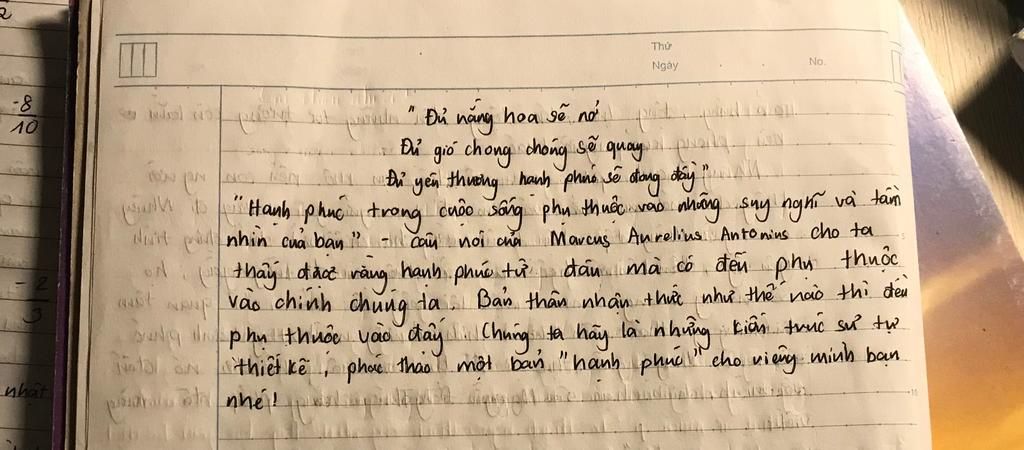 Thứ
Ngày No.
" Đủ nắng hoa sẽ nở
Đủ gió chong chóng sẽ quay
Đủ yêu thương hạnh phúc sẽ đong đầy "
" Hạnh phúc trong cuộc sống phụ thuộc vào những suy nghĩ và tầm
nhìn của bạn " - câu nói của Marcus Aurelius Antonius cho ta
thấy được rằng hạnh phúc từ đâu mà có đều phụ thuộc
vào chính chúng ta. Bản thân nhận thức như thế nào thì đều
phụ thuộc vào đấy. Chúng ta hãy là những kiến trúc sư tự
thiết kế, phác thảo một bản "hạnh phúc" cho riêng mình bạn
nhé !
-8
10
-2
3
nhật